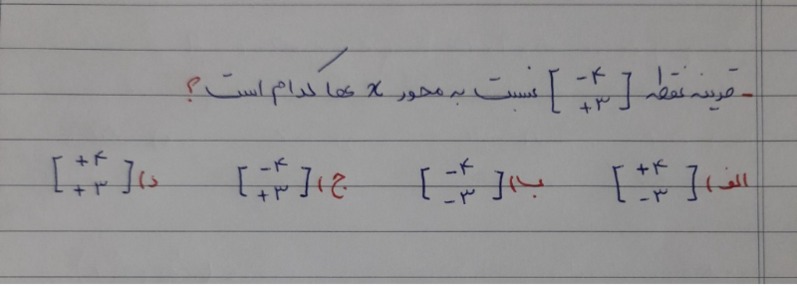 - قرینه نقطه [-۴ +۳] نسبت به محور x ها کدام است؟
الف) [+۴ -۳] ب) [-۴ -۳] ج) [-۴ +۳] د) [+۴ +۳]